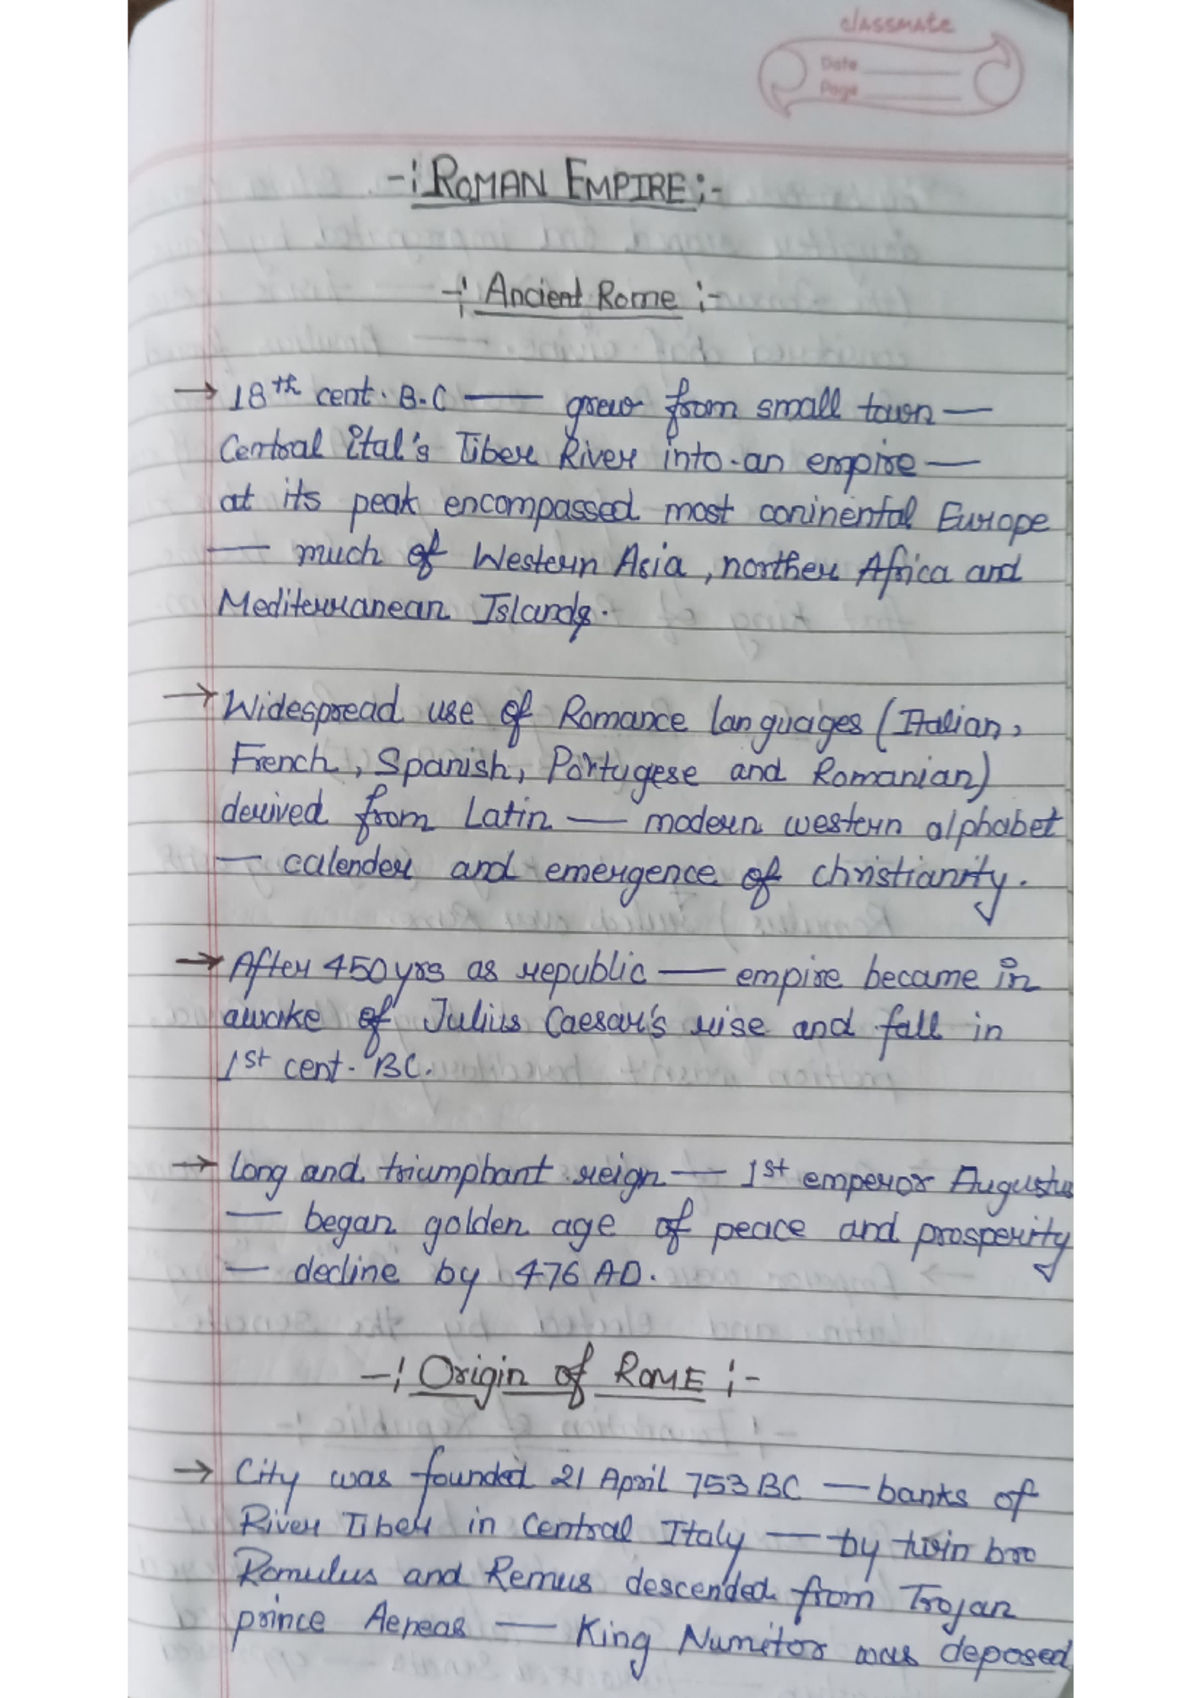 classmate
Date
Page
-: ROMAN EMPIRE :-
-: Ancient Rome :-
→ 18th cent. B.C — grew from small town —
Central Ital's Tiber River into an empire —
at its peak encompassed most coninental Europe
— much of Western Asia, northern Africa and
Mediterranean Islands.
→ Widespread use of Romance languages (Italian,
French, Spanish, Portugese and Romanian)
derived from Latin — modern western alphabet
— calender and emergence of christianity.
→ After 450 yrs as republic — empire became in
awake of Julius Caesar's rise and fall in
1st cent. BC.
→ Long and triumphant reign — 1st emperor Augustus
— began golden age of peace and prosperity
— decline by 476 AD.
-: Origin of ROME :-
→ City was founded 21 April 753 BC — banks of
River Tiber in Central Italy — by twin bro
Romulus and Remus descended from Trojan
prince Aeneas — King Numitor was deposed